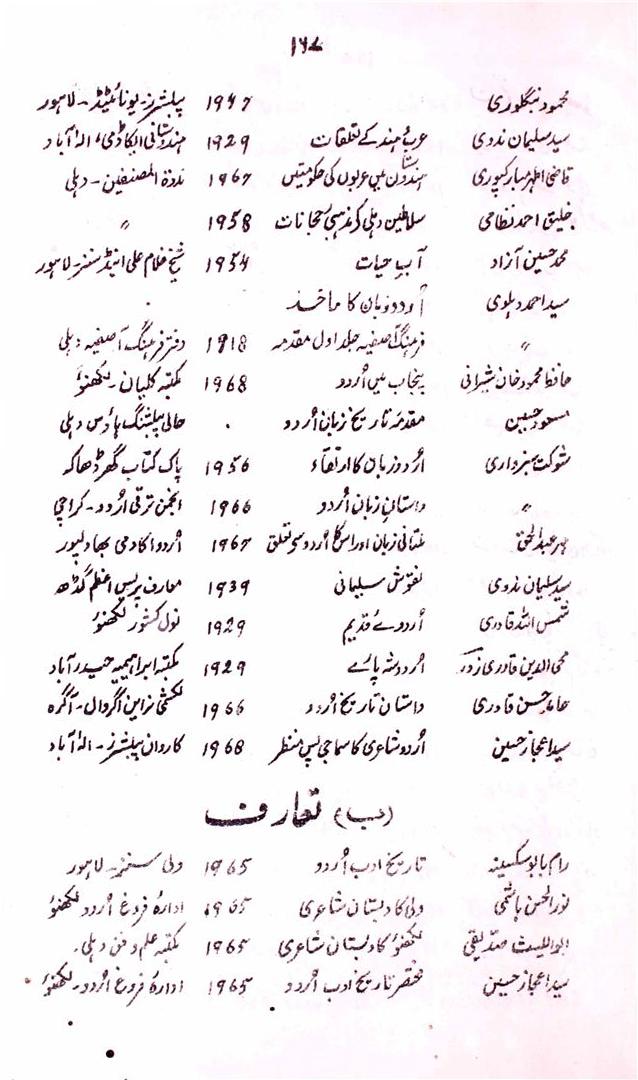 ۱۶۷
محمود بنگلوری ۱۹۴۷ پبلشرز۔یونائیٹڈ۔لاہور
سید سلیمان ندوی عرب و ہند کے تعلقات ۱۹۲۹ ہندوستانی اکاڈمی، الہ آباد
قاضی اطہر مبارکپوری ہندوستان میں عربوں کی حکومتیں ۱۹۶۷ ندوۃ المصنفین۔دہلی
خلیق احمد نظامی سلاطین دہلی کے مذہبی رجحانات ۱۹۵۸ 〃
محمد حسین آزاد آبِ حیات ۱۹۵۴ شیخ غلام علی اینڈ سنز۔لاہور
سید احمد دہلوی اردو زبان کا ماخذ
〃 فرہنگ آصفیہ جلد اول مقدمہ ۱۹۱۸ دفتر فرہنگ آصفیہ دہلی
حافظ محمود خان شیرانی پنجاب میں اُردو ۱۹۶۸ مکتبہ کلیان۔لکھنؤ
مسعود حسین مقدمہ تاریخ زبان اُردو حالی پبلشنگ ہاؤس دہلی
شوکت سبزواری اُردو زبان کا ارتقاء ۱۹۵۶ پاک کتاب گھر ڈھاکہ
〃 داستانِ زبان اُردو ۱۹۶۶ انجمن ترقی اُردو۔کراچی
مہر عبدالحق ملتانی زبان اور اس کا اُردو سے تعلق ۱۹۶۷ اُردو اکادمی بھاولپور
سید سلیمان ندوی نقوش سلیمانی ۱۹۳۹ معارف پریس اعظم گڈھ
شمس اللہ قادری اُردوے قدیم ۱۹۲۹ نول کشور لکھنؤ
محی الدین قادری زور اردو شہ پارے ۱۹۲۹ مکتبہ ابراہیمیہ حیدرآباد
حامد حسن قادری داستان تاریخ اُردو ۱۹۶۶ لکشمی نراین اگروال۔آگرہ
سید اعجاز حسین اُردو شاعری کا سماجی پس منظر ۱۹۶۸ کاروان پبلشرز۔الہ آباد
(ب) تعارف
رام بابو سکسینہ تاریخ ادب اُردو ۱۹۶۵ ولی سنز۔لاہور
نور الحسن ہاشمی ولی کا دبستان شاعری ۱۹۶۵ ادارۂ فروغ اُردو لکھنؤ
ابو اللیث صدیقی لکھنؤ کا دبستان شاعری ۱۹۶۵ مکتبہ علم و فن دہلی۔
سید اعجاز حسین مختصر تاریخ ادب اُردو ۱۹۶۵ ادارۂ فروغ اُردو۔لکھنؤ